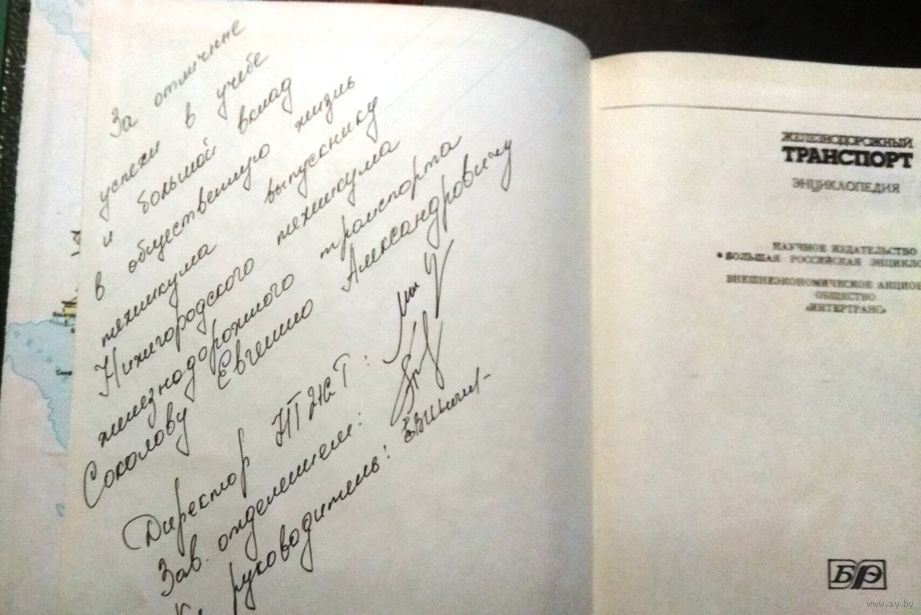 За отличные
успехи в учебе
и большой вклад
в общественную жизнь
техникума выпускнику
Нижегородского техникума
железнодорожного транспорта
Соколову Евгению Александровичу
Директор НТЖТ:
Зав. отделением:
Кл. руководитель:
ЖЕЛЕЗНОДОРОЖНЫЙ
ТРАНСПОРТ
ЭНЦИКЛОПЕДИЯ
НАУЧНОЕ ИЗДАТЕЛЬСТВО
«БОЛЬШАЯ РОССИЙСКАЯ ЭНЦИКЛО
ВНЕШНЕЭКОНОМИЧЕСКОЕ АКЦИО
ОБЩЕСТВО
«ИНТЕРТРАНС»
БРЭ
www.ay.by